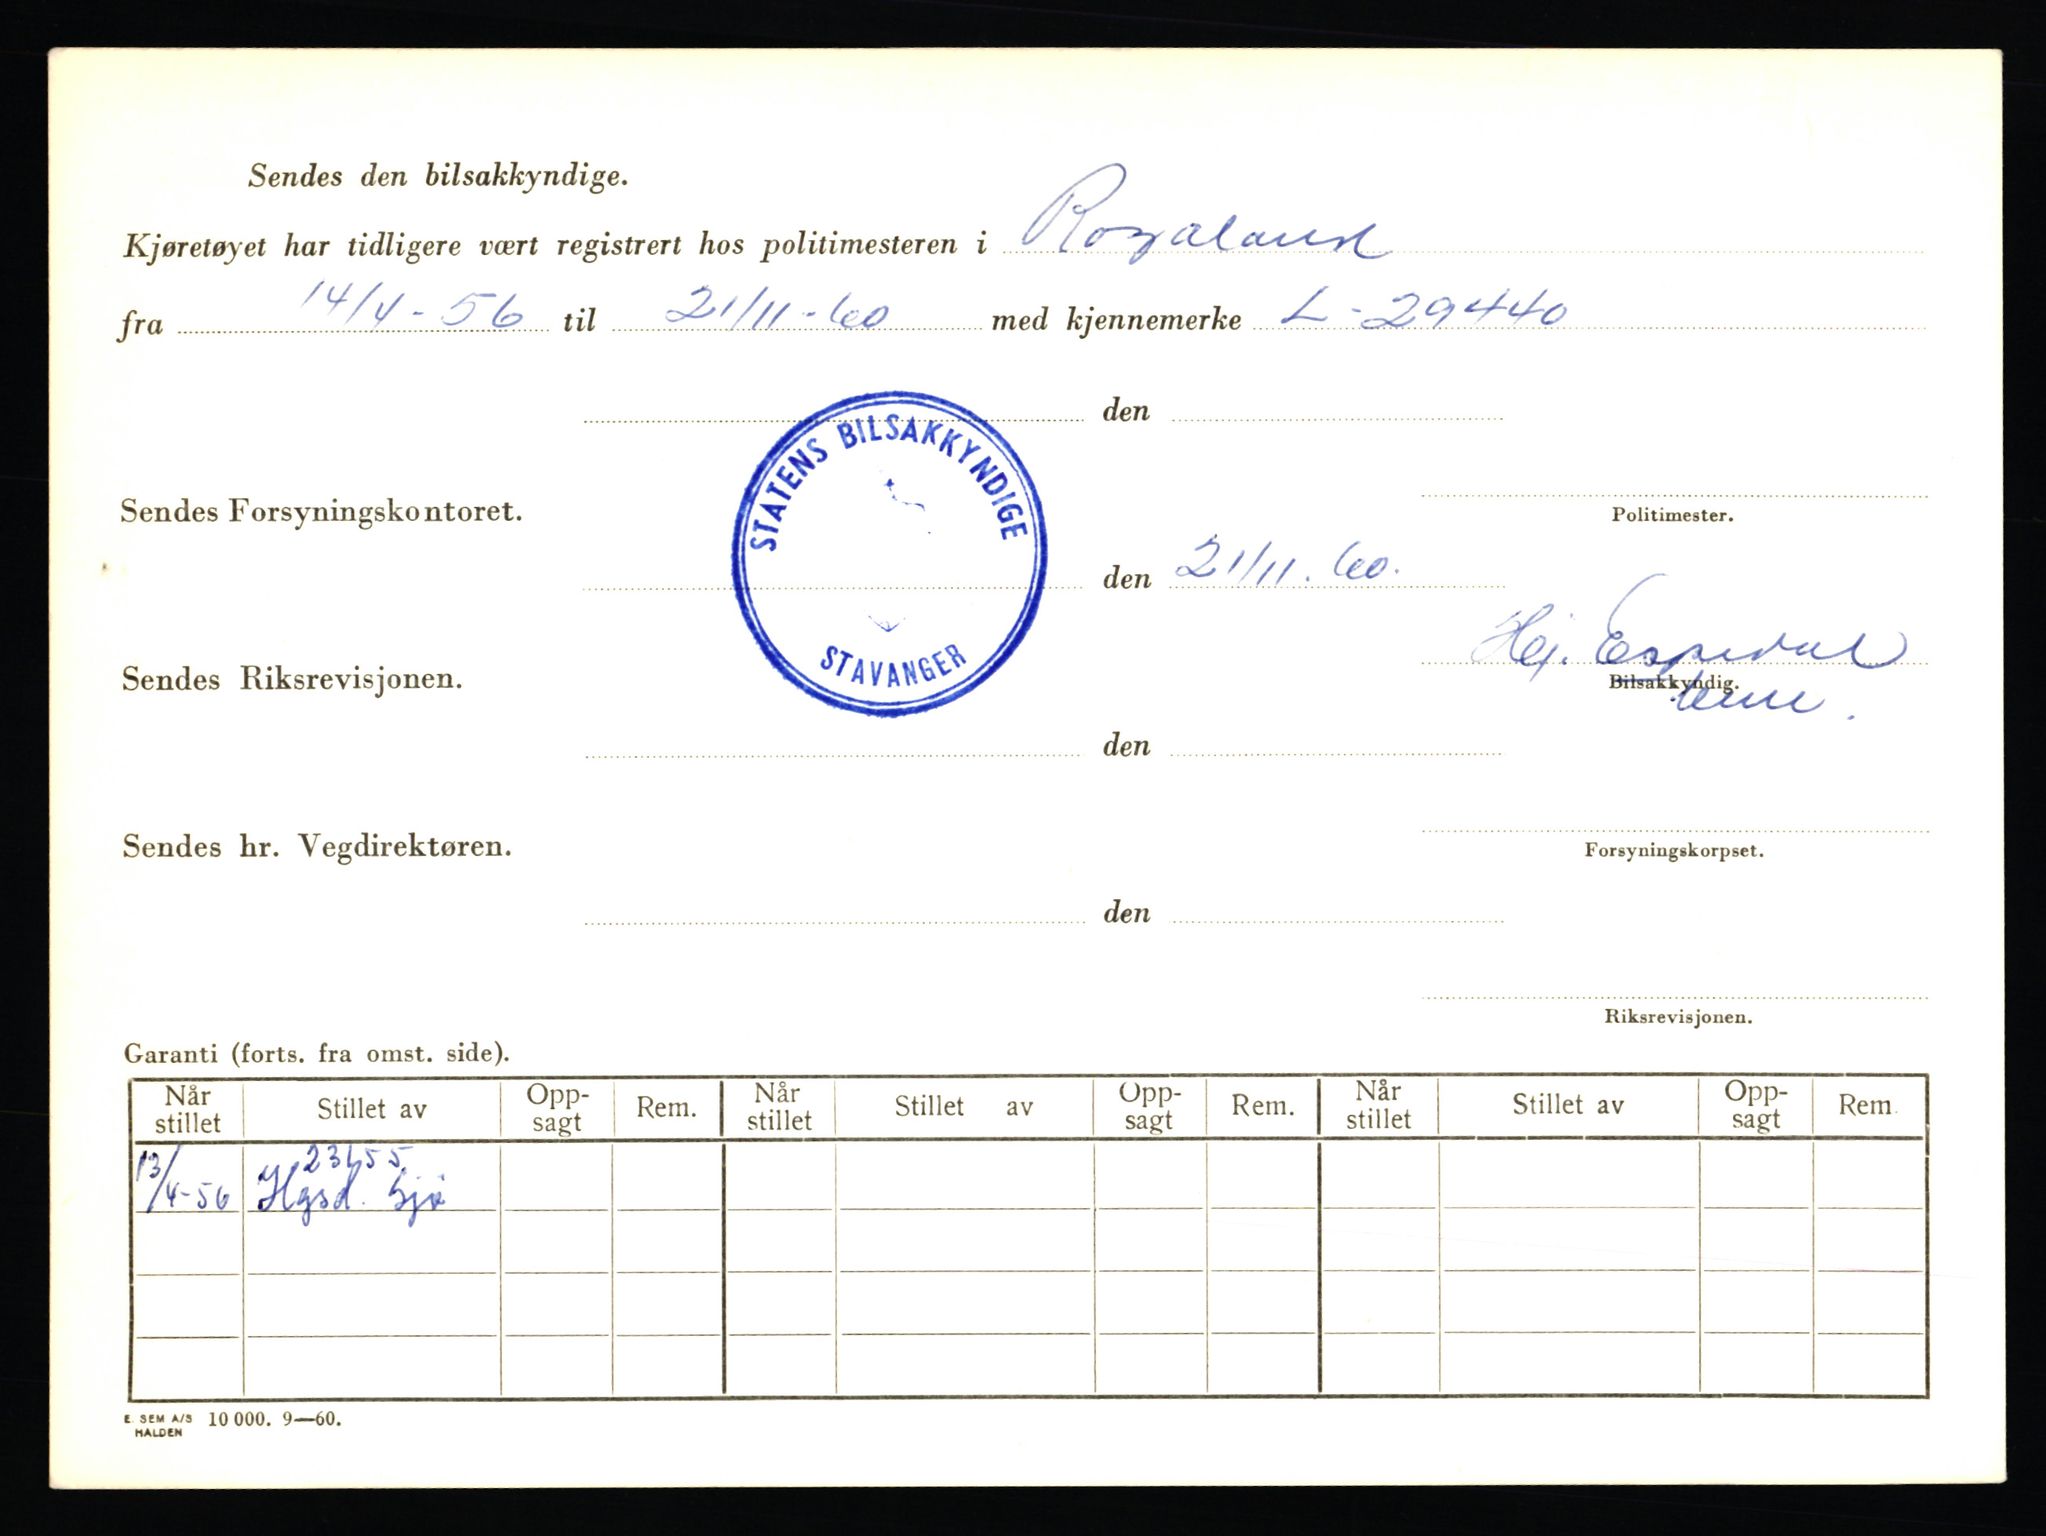 Sendes den bilsakkyndige.
Kjøretøyet har tidligere vært registrert hos politimesteren i Rogaland
fra 14/4-56 til 21/11-60 med kjennemerke L-29440
den
STATENS BILSAKKYNDIGE
STAVANGER
Sendes Forsyningskontoret.
Politimester.
den 21/11.60.
Espedal
Sendes Riksrevisjonen.
Bilsakkyndig.
den
Sendes hr. Vegdirektøren.
Forsyningskorpset.
den
Riksrevisjonen.
Garanti (forts. fra omst. side).
Når stillet Stillet av Opp-sagt Rem. Når stillet Stillet av Opp-sagt Rem. Når stillet Stillet av Opp-sagt Rem.
13/4-56 Hgsd. Sjø
E. SEM A/S 10 000. 9—60.
HALDEN